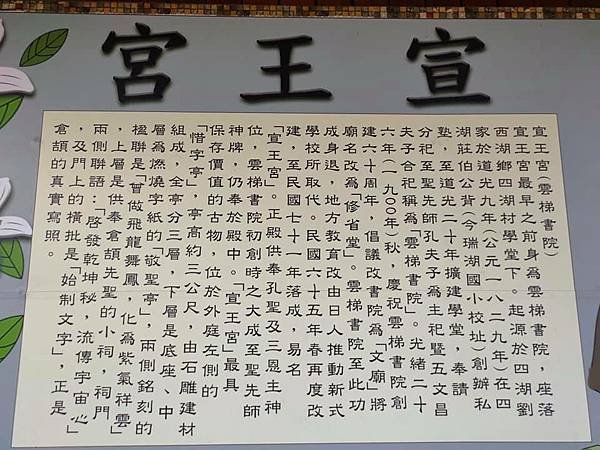 宣王宮
宣王宮(雲梯書院)
宣王宮最早之前身為雲梯書院，座落
西湖鄉四湖村學堂下。起源於四湖劉
家於道光九年(公元一八二九年)在四
湖莊伯公背(今瑞湖國小校址)創辦私
塾，至道光二十年擴建學堂，奉請
分祀至聖先師孔夫子為主祀暨五文昌
夫子合祀稱為「雲梯書院」。光緒二十
六年(一九00年)秋，慶祝雲梯書院創
建六十周年，倡議改書院為「文廟」將
廟名改為「修省堂」。雲梯書院至此功
成身退，地方教育改由日人推動新式
學校所取代。民國六十五年春再度改
建，至民國七十一年落成，易名
「宣王宮」。正殿供奉孔聖及三恩主神
位，雲梯書院初創時之大成至聖先師
神牌，仍奉於殿中。「宣王宮」最具
保存價值的古物，位於外庭左側的
「惜字亭」，亭高約三公尺，由石雕建材
組成，全亭分三層，下層是底座、中
層為燃燒字紙的「敬聖亭」，兩側銘刻的
楹聯是「曾做飛龍舞鳳，化為紫氣祥雲」
，上層是供奉倉頡先聖的小祠，祠門
兩側聯語：「啓發乾坤秘，流傳宇宙心」
，及門上的橫批是「始制文字」，正是
倉頡的真實寫照。